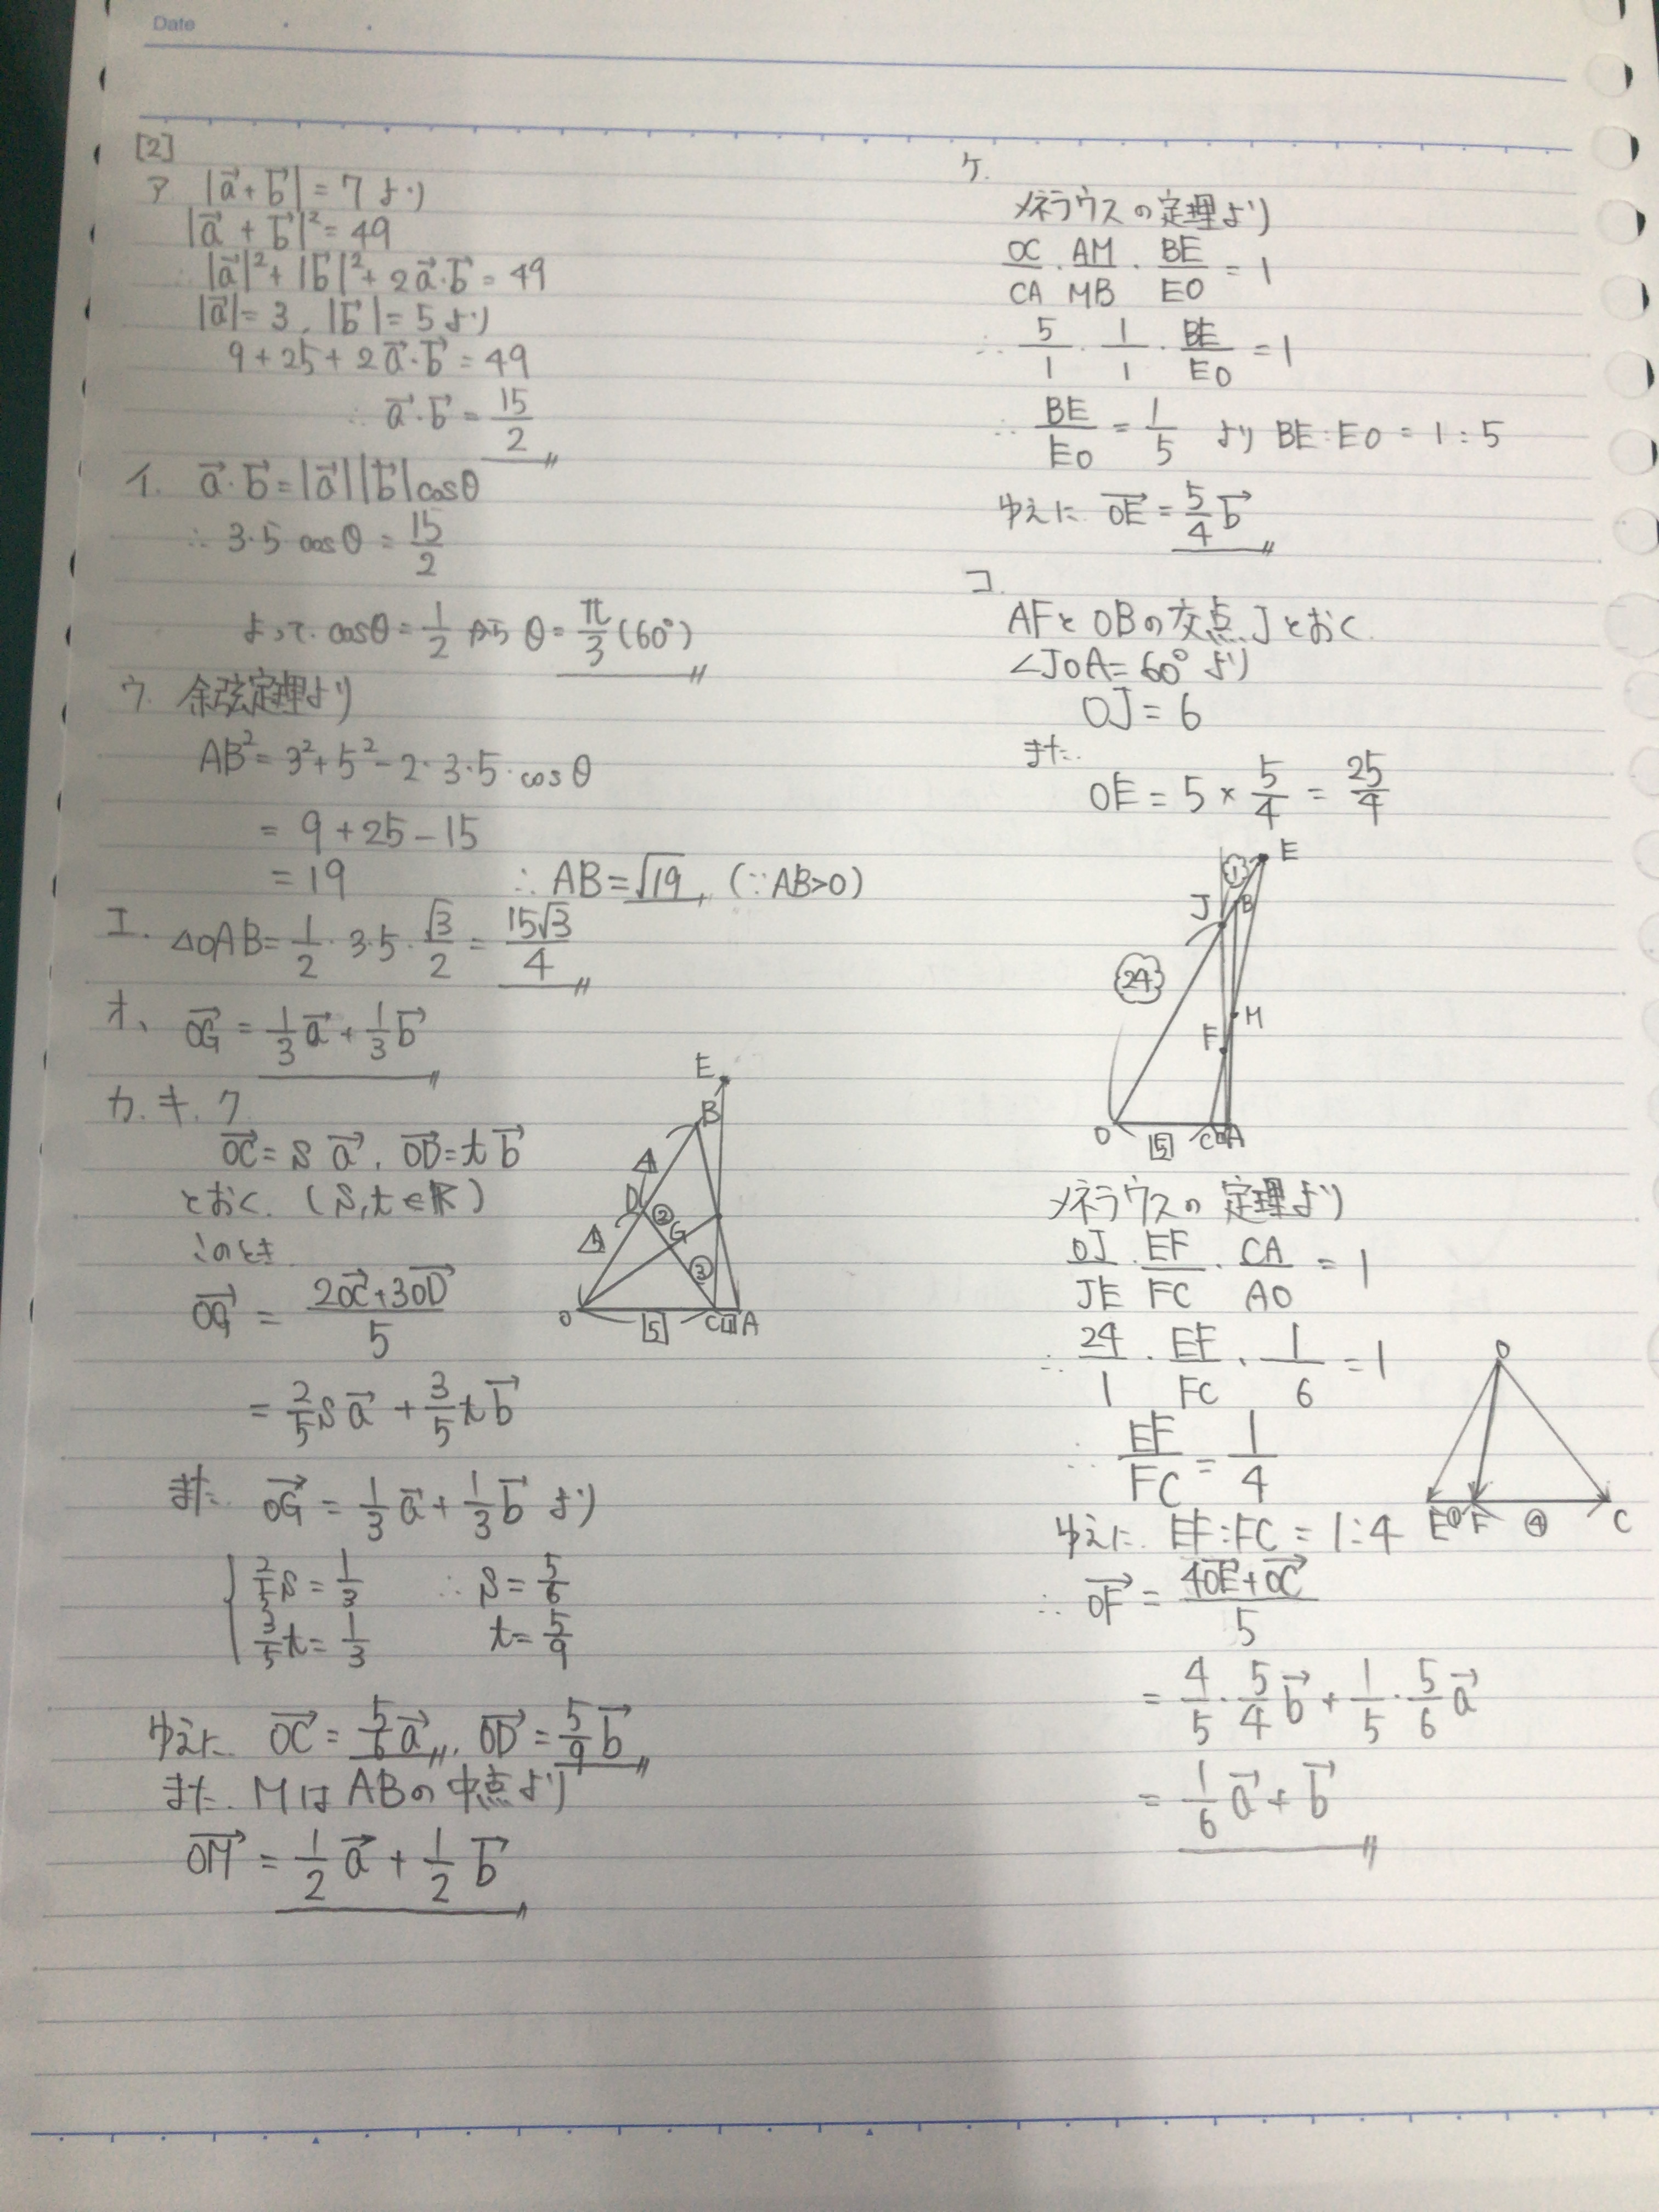 Date
[2]
ア |a⃗+b⃗| = 7 より
|a⃗+b⃗|² = 49
∴ |a⃗|²+|b⃗|²+2a⃗·b⃗ = 49
|a⃗|=3, |b⃗|=5 より
9+25+2a⃗·b⃗ = 49
∴ a⃗·b⃗ = 15/2
イ. a⃗·b⃗ = |a⃗||b⃗|cosθ
∴ 3·5 cosθ = 15/2
よって. cosθ = 1/2 から θ = π/3 (60°)
ウ. 余弦定理より
AB² = 3²+5²-2·3·5·cosθ
= 9+25-15
= 19 ∴ AB = √19, (∵AB>0)
エ. △OAB = 1/2 · 3·5 · √3/2 = 15√3/4
オ、 OG⃗ = 1/3 a⃗ + 1/3 b⃗
カ. キ. ク
OC⃗ = s a⃗, OD⃗ = t b⃗
とおく. (s, t ∈ ℝ)
このとき
OG⃗ = (2OC⃗+3OD⃗)/5
= 2/5 s a⃗ + 3/5 t b⃗
また. OG⃗ = 1/3 a⃗ + 1/3 b⃗ より
{ 2/5 s = 1/3 ∴ s = 5/6
3/5 t = 1/3 t = 5/9
ゆえに. OC⃗ = 5/6 a⃗, OD⃗ = 5/9 b⃗
また. MはABの中点より
OM⃗ = 1/2 a⃗ + 1/2 b⃗
E
B
4
D
②
G
5
③
O
5
C
1
A
ケ.
メネラウスの定理より
OC/CA · AM/MB · BE/EO = 1
∴ 5/1 · 1/1 · BE/EO = 1
∴ BE/EO = 1/5 より BE:EO = 1:5
ゆえに. OE⃗ = 5/4 b⃗
コ.
AFとOBの交点Jとおく.
∠JOA = 60° より
OJ = 6
また.
OE = 5 × 5/4 = 25/4
1
E
J
B
24
M
F
O
5
C
1
A
メネラウスの定理より
OJ/JE · EF/FC · CA/AO = 1
∴ 24/1 · EF/FC · 1/6 = 1
∴ EF/FC = 1/4
ゆえに. EF:FC = 1:4
O
E
①
F
④
C
∴ OF⃗ = (4OE⃗+OC⃗)/5
= 4/5 · 5/4 b⃗ + 1/5 · 5/6 a⃗
= 1/6 a⃗ + b⃗